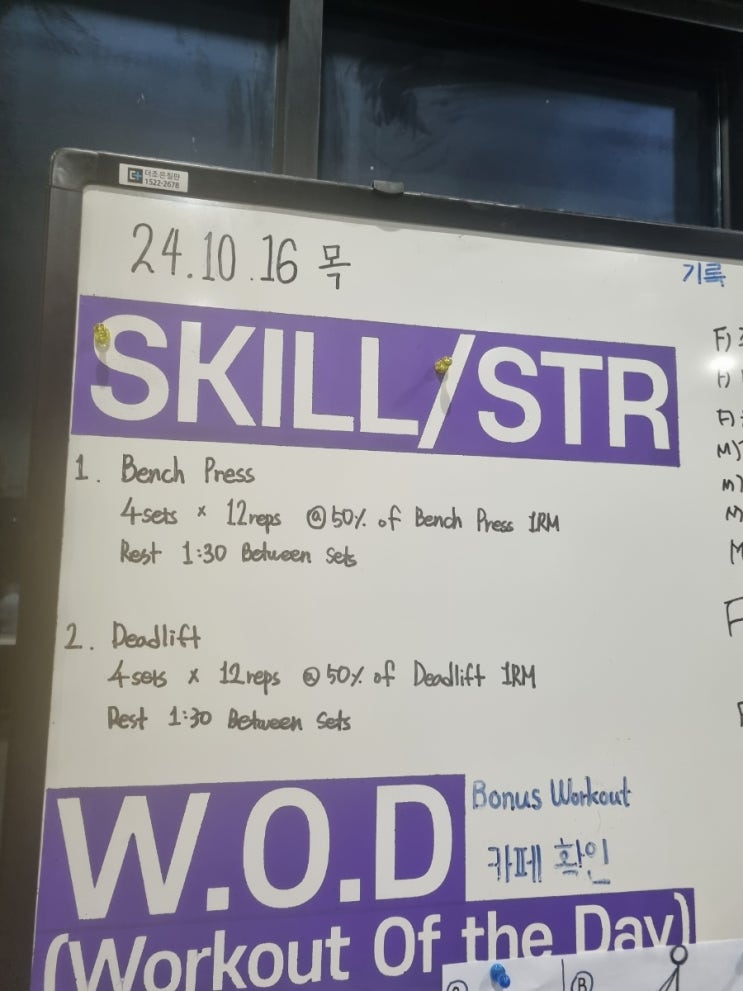 더조은칠판
1522-2678
24.10.16 목
기록
SKILL/STR
1. Bench Press
4sets × 12reps @50% of Bench Press 1RM
Rest 1:30 Between Sets
2. Deadlift
4sets × 12reps @50% of Deadlift 1RM
Rest 1:30 Between Sets
F)
F)
F)
M)
M)
M
M
F
W.O.D
Bonus Workout
카페 확인
(Workout Of the Day)
A
B